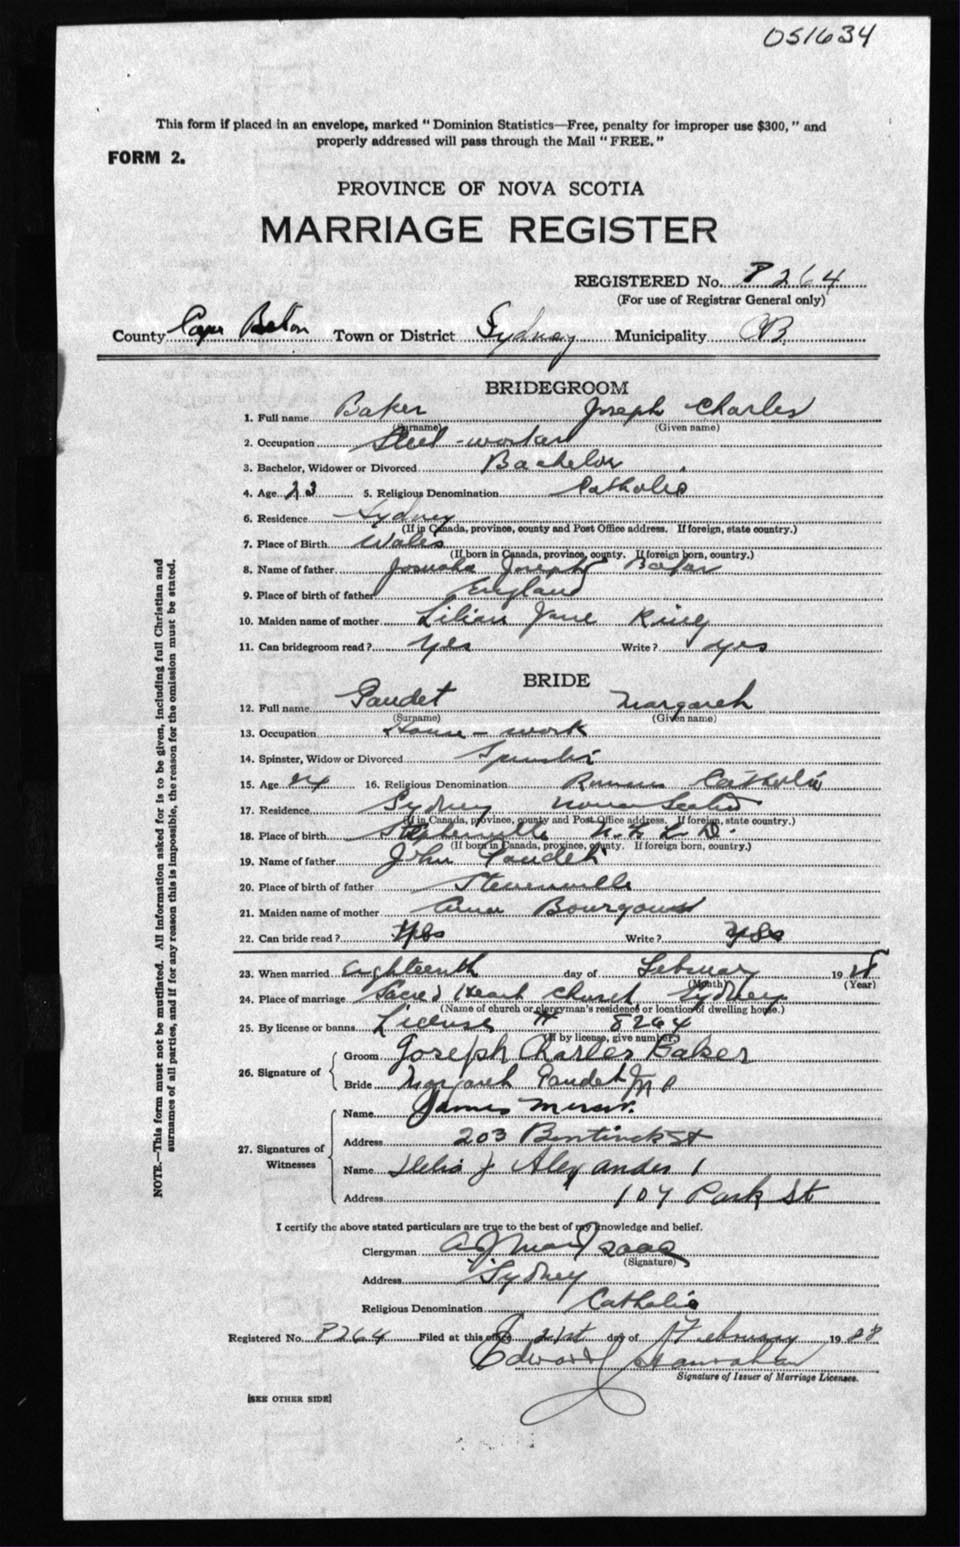 051634
This form if placed in an envelope, marked " Dominion Statistics—Free, penalty for improper use $300, " and
properly addressed will pass through the Mail " FREE. "
FORM 2.
PROVINCE OF NOVA SCOTIA
MARRIAGE REGISTER
REGISTERED No. 8264
(For use of Registrar General only)
County Cape Breton Town or District Sydney Municipality CB
BRIDEGROOM
1. Full name Baker Joseph Charles
(Surname) (Given name)
2. Occupation Steel-worker
3. Bachelor, Widower or Divorced Bachelor
4. Age 23 5. Religious Denomination Catholic
6. Residence Sydney
(If in Canada, province, county and Post Office address. If foreign, state country.)
7. Place of Birth Wales
(If born in Canada, province, county. If foreign born, country.)
8. Name of father Joseph Baker
9. Place of birth of father England
10. Maiden name of mother Lilian Jane King
11. Can bridegroom read? yes Write? yes
BRIDE
12. Full name Gaudet Margaret
(Surname) (Given name)
13. Occupation House-work
14. Spinster, Widow or Divorced Spinster
15. Age 24 16. Religious Denomination Roman Catholic
17. Residence Sydney Nova Scotia
(If in Canada, province, county and Post Office address. If foreign, state country.)
18. Place of birth Stephenville N.F.L.D.
(If born in Canada, province, county. If foreign born, country.)
19. Name of father John Gaudet
20. Place of birth of father Stevenville
21. Maiden name of mother Anna
22. Can bride read? Yes Write? Yes
23. When married Eighteenth day of February 1928
(Month) (Year)
24. Place of marriage Sacred Heart Church Sydney
(Name of church or clergyman's residence or location of dwelling house.)
25. By license or banns License # 8264
(If by license, give number.)
26. Signature of Groom Joseph Charles Baker
Bride Margaret Gaudet
27. Signatures of Witnesses
Name James
Address 203 Bentinck St
Name J Alexander
Address 107 Park St
I certify the above stated particulars are true to the best of my knowledge and belief.
Clergyman
(Signature)
Address Sydney
Religious Denomination Catholic
Registered No. 8264 Filed at this office 21st day of February 1928
Edward Hanrahan
Signature of Issuer of Marriage Licenses.
[SEE OTHER SIDE]
NOTE.—This form must not be mutilated. All information asked for is to be given, including full Christian and
surnames of all parties, and if for any reason this is impossible, the reason for the omission must be stated.